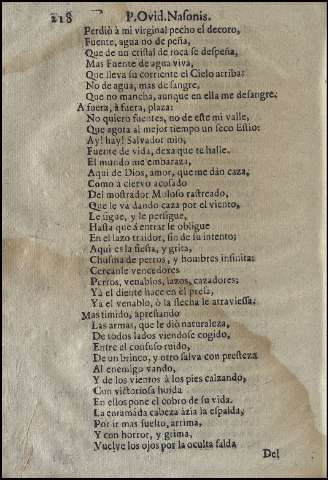 218 P. Ovid. Nasonis.
Perdiò à mi virginal pecho el decoro,
Fuente, agua no de peña,
Que de un cristal de roca se despeña,
Mas Fuente de agua viva,
Que lleva su corriente el Cielo arriba:
No de agua, mas de sangre,
Que no mancha, aunque en ella me desangre.
A fuera, à fuera, plaza:
No quiero fuentes, no de este mi valle,
Que agota al mejor tiempo un seco Estio:
Ay! hay! Salvador mio,
Fuente de vida, dexa que te halle.
El mundo me embaraza,
Aqui de Dios, amor, que me dán caza,
Como à ciervo acosado
Del mostrador Moloso rastreado,
Que le va dando caza por el viento,
Le sigue, y le persigue,
Hasta que á entrar le obligue
En el lazo traidor, fin de su intento;
Aqui es la fiesta, y grita,
Chusma de perros, y hombres infinita:
Cercanle vencedores
Perros, venablos, lazos, cazadores;
Yà el diente hace en el presa,
Ya el venablo, ò la flecha le atraviessa;
Mas timido, aprestando
Las armas, que le diò naturaleza,
De todos lados viendose cogido,
Entre el confuso ruido,
De un brinco, y otro salva con presteza
Al enemigo vando,
Y de los vientos à los pies calzando,
Con victoriosa huida
En ellos pone el cobro de su vida.
La enramada cabeza àzia la espalda,
Por ir mas suelto, arrima,
Y con horror, y grima,
Vuelve los ojos por la oculta falda
Del